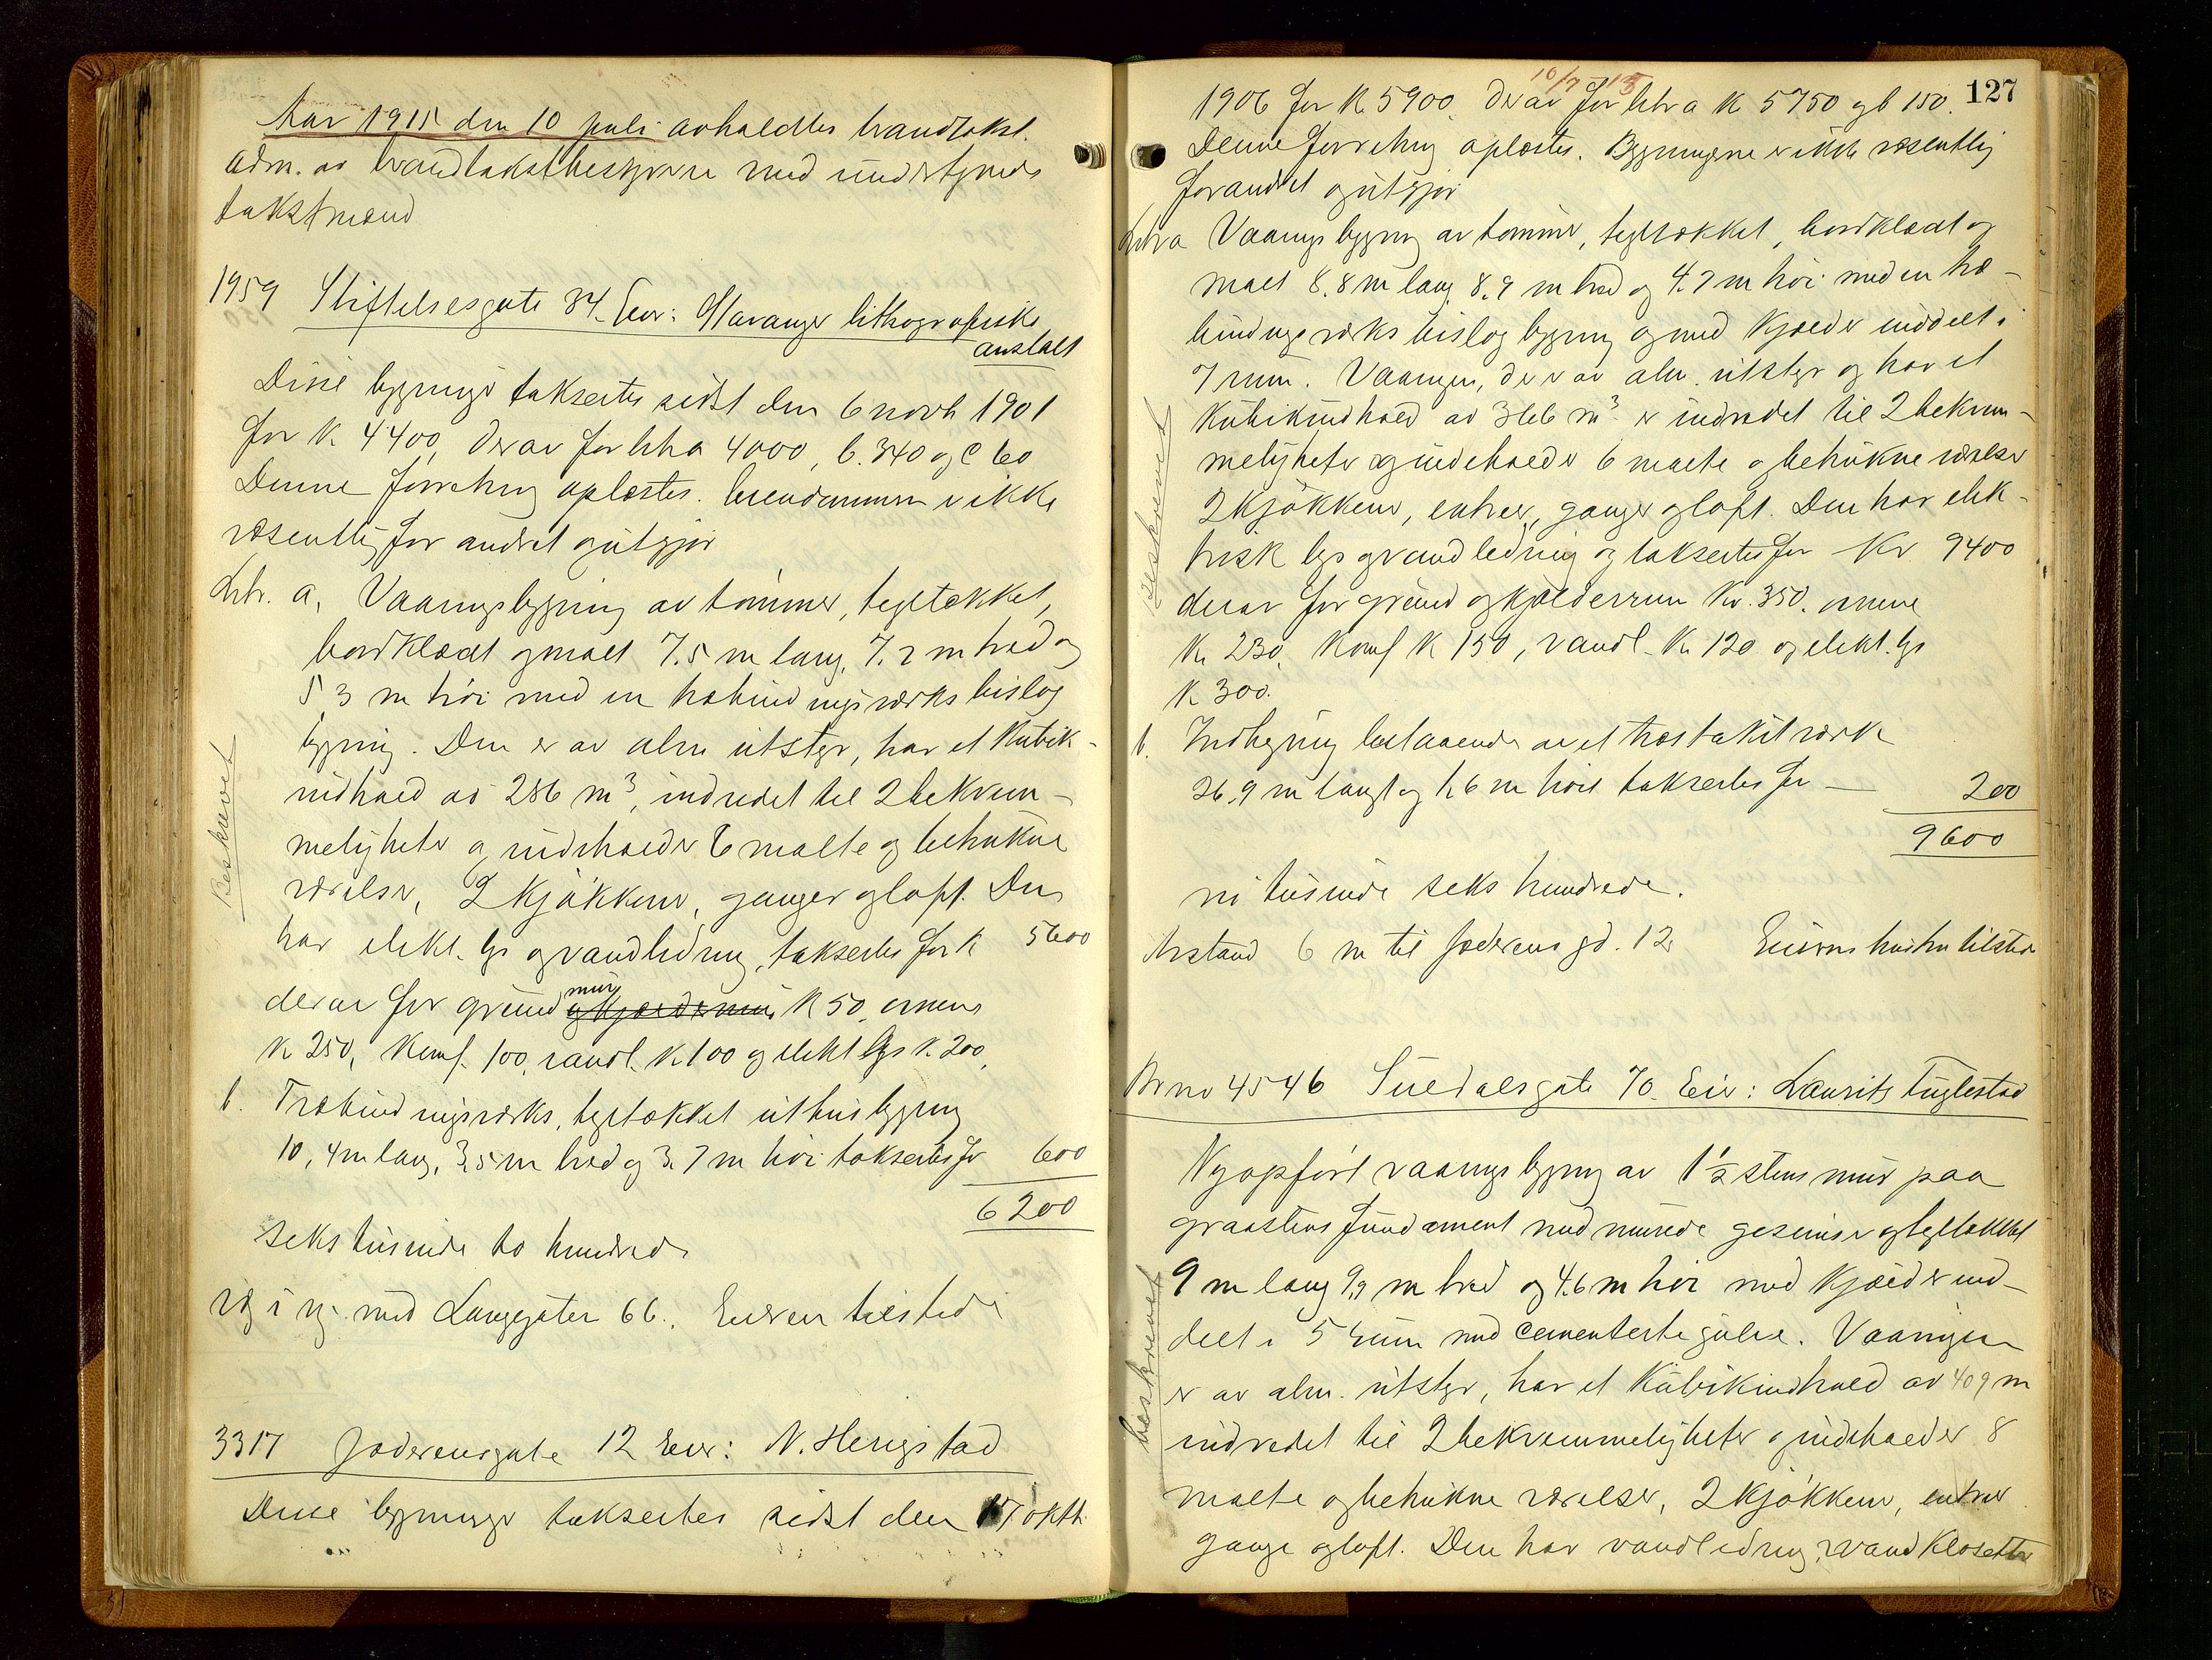 Aar 1915 den 10 juli avholdtes brandtakst
adm. av brandtakstbestyreren med undertegnede
takstmænd
1959 Stiftelsesgate 34. Eier: Stavanger lithografiske
anstalt
Disse bygninger taksertes sidst den 6 novb 1901
for K 4400, derav for litra 4000, b. 340 og c 60
Denne forretning oplæstes. Eiendommen er ikke
væsentlig forandret og utgjør
Litr. a. Vaaningsbygning av tømmer, tegltækket,
bordklædt og malt 7.5 m lang, 7.2 m bred og
5.3 m høi med en træbindingsverks bislag
bygning. Den er av alm utstyr, har et Kubik-
indhold av 286 m³, indredet til 2 bekvem-
meligheter og indeholder 6 malte og betrukne
værelser, 2 Kjøkkener, ganger og loft. Den
har elekt. lys og vandledning, taksertes for K 5600
derav for grund mur og Kjeldermur K 50, ovnene
K 250, Komf. 100, vandl. K 100 og elekt lys K. 200.
b. Træbindingsverks, tegltækket uthusbygning
10,4 m lang, 3,5 m bred og 3.7 m høi taksertes for 600
6200
seks tusinde to hundrede
væg i væg med Langgaten 66. Eieren tilstede
3317 Jæderensgate 12 Eier: N. Henigstad
Disse bygninger taksertes sidst den 17 oktb.
Beskrevet
127
10/7 15
1906 for K 5900. Derav for litra a K 5750 og b 150.
Denne forretning oplæstes. Bygningerne er ikke væsentlig
forandret og utgjør
Litra a Vaaningsbygning av tømmer, tegltækket, bordklædt og
malt 8.8 m lang 8.9 m bred og 4.7 m høi med en træ-
bindingsverks bislag bygning og med Kjælder inddelt i
7 rum. Vaaningen, der er av alm. utstyr og har et
Kubikindhold av 366 m³ er indredet til 2 bekvem-
meligheter og indeholder 6 malte og betrukne værelser
2 Kjøkkener, entreer, ganger og loft. Den har elek-
trisk lys og vandledning og taksertes for Kr 9400
derav for grund og kjælderrum Kr. 350. ovnene
K. 230, Komf K 150, vandl. K. 120 og elekt. lys
K 300.
b. Indhegning bestaaende av et træstakitverk
26.9 m langt og 1.6 m høit taksertes for — 200
9600
ni tusinde seks hundrede.
Avstand 6 m til Jæderens gd. 12 Eierens hustru tilstede
Br no 4546 Suldalsgate 70. Eier: Laurits Tuglestad
Nyopført vaaningsbygning av 1½ stens mur paa
graastens fundament med murede gesimser og tegltækket
9 m lang 9,9 m bred og 4.6 m høi med Kjælder ind-
delt i 5 rum med cementerte gulve. Vaaningen
er av alm. utstyr, har et Kubikindhold av 409 m
indredet til 2 bekvemmeligheter og indeholder 8
malte og betrukne værelser, 2 Kjøkkener, entreer
gange og loft. Den har vandledning, vandklosetter
Beskrevet
beskrevet